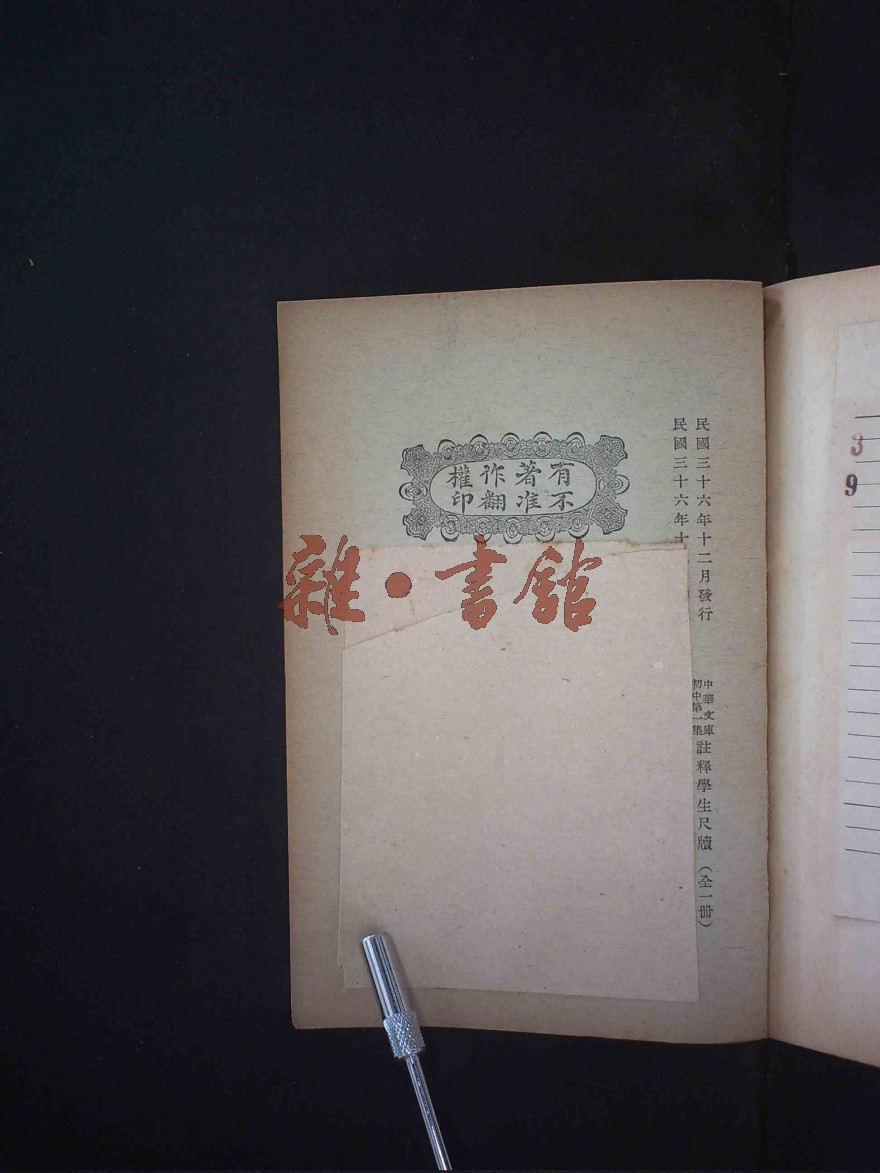 民國三十六年十二月發行
民國三十六年十
中華文庫
初中第一集
註釋學生尺牘（全一冊）
有著作權
不准翻印
雜·書館
3
9